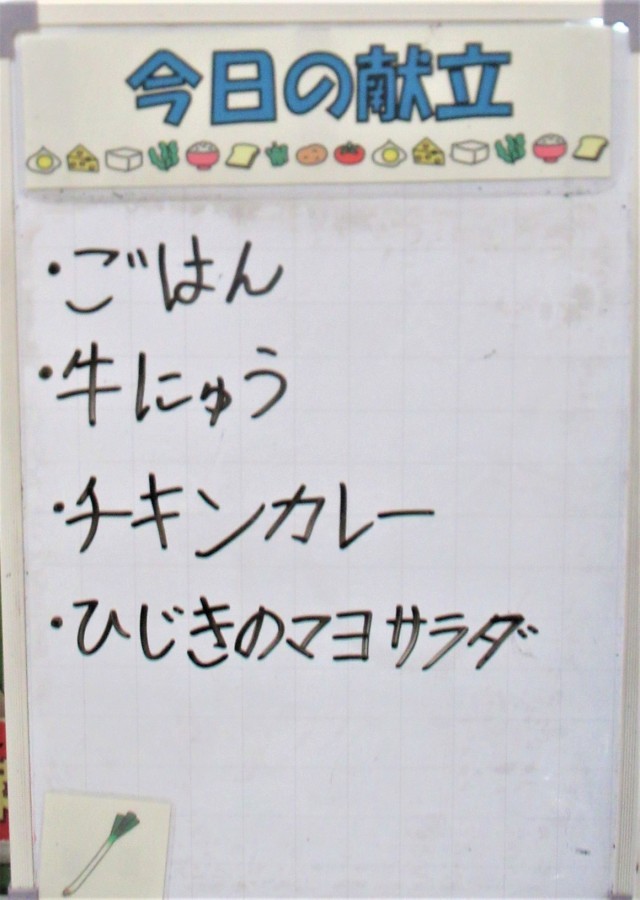 今日の献立
・ごはん
・牛にゅう
・チキンカレー
・ひじきのマヨサラダ